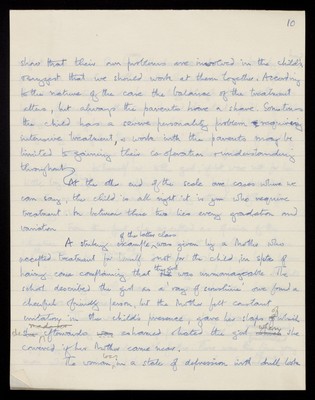 10
show that their own problems are involved in the child's
& suggest that we should work at them together. According
to the nature of the case the balance of the treatment
alters, but always the parents have a share. Sometimes
the child has a severe personality problem requiring
intensive treatment, & work with the parents may be
limited to gaining their co-operation & understanding
throughout.
At the other end of the scale are cases where we
can say, the child is all right it is you who require
treatment. In between these two lies every gradation and
variation.
of the latter class
A striking example was given by a Mother who
accepted treatment for herself & not for the child, in spite of
having come complaining that the girl was unmanageable. The
school described the girl as a 'ray of sunshine' we found a
cheerful friendly person, but the Mother felt constant
irritation in the child's presence, gave her slaps of which
she afterwards was ashamed & hated the girl when she
cowered if her Mother came near.
The woman, was in a state of depression with dull look